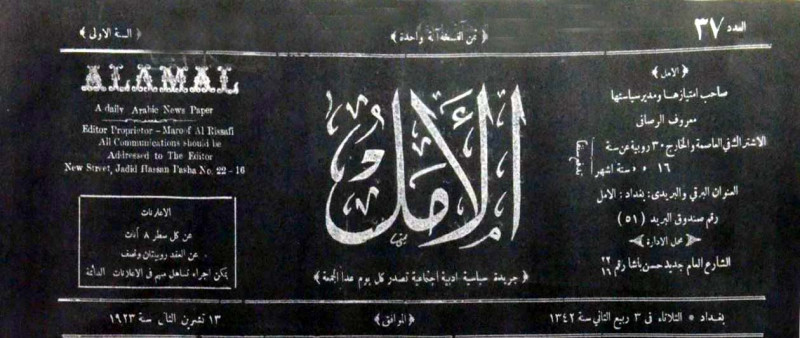 العدد ٣٧
﴿ ثمن النسخة آنة واحدة ﴾
﴿ السنة الاولى ﴾
﴿ الامل ﴾
صاحب امتيازها ومدير سياستها
معروف الرصافى
الاشتراك فى العاصمة والخارج ٣٠ روبية عن سنة
١٦ » » ستة اشهر
العنوان البرقي والبريدى: بغداد: الامل
رقم صندوق البريد (٥١)
﴿ محل الادارة ﴾
الشارع العام جديد حسن باشا رقم ٢٢/١٦
الأمل
﴿ جريدة سياسية ادبية اجتماعية تصدر كل يوم عدا الجمعة ﴾
ALAMAL
A daily Arabic News Paper
Editor Proprietor – Maroof Al Rissafi
All Communications should be
Addressed to The Editor
New Street, Jadid Hassan Pasha No. 22 - 16
الاعلانات
عن كل سطر ٨ آنات
عن العقد روبيتان ونصف
يمكن اجراء تساهل مهم فى الاعلانات الدائمة
بغداد * الثلاثاء فى ٣ ربيع الثانى سنة ١٣٤٢
﴿ الموافق ﴾
١٣ تشرين الثانى سنة ١٩٢٣